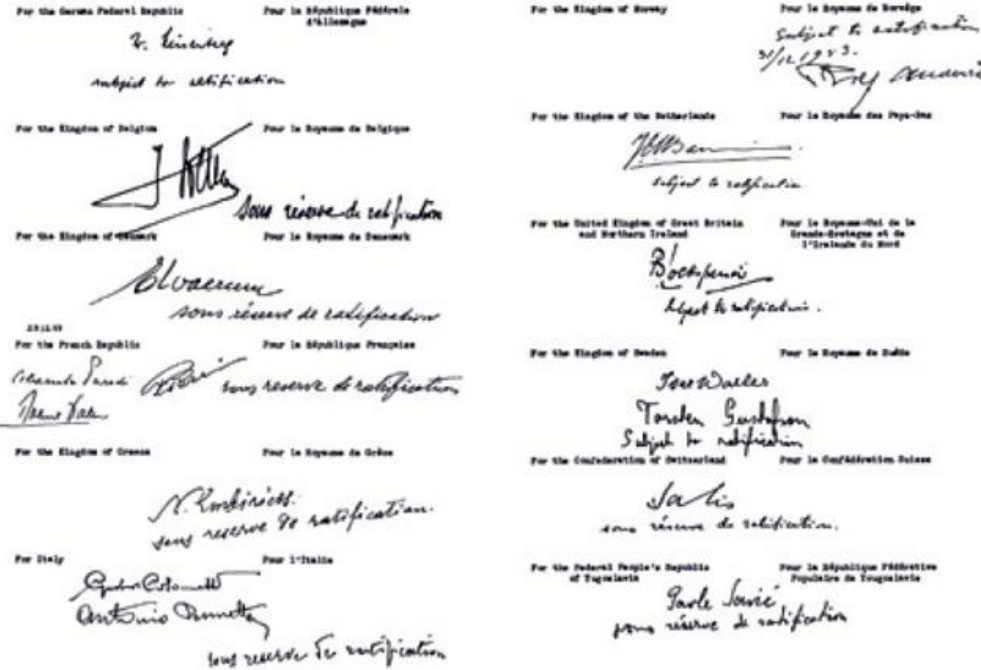 For the German Federal Republic Pour la République Fédérale
d'Allemagne
subject to ratification
For the Kingdom of Belgium Pour le Royaume de Belgique
sous réserve de ratification
For the Kingdom of Denmark Pour le Royaume de Danemark
sous réserve de ratification
For the French Republic Pour la République Française
sous reserve de ratification
For the Kingdom of Greece Pour le Royaume de Grèce
sous reserve de ratification.
For Italy Pour l'Italie
Antonio
sous reserve de ratification
For the Kingdom of Norway Pour le Royaume de Norvège
Subject to ratification
31/12 1953.
For the Kingdom of the Netherlands Pour le Royaume des Pays-Bas
subject to ratification
For the United Kingdom of Great Britain Pour le Royaume-Uni de la
and Northern Ireland Grande-Bretagne et de
l'Irelande du Nord
Subject to ratification.
For the Kingdom of Sweden Pour le Royaume de Suède
Waller
Torsten Gustafson
Subject to ratification
For the Confederation of Switzerland Pour la Confédération Suisse
Salis
sous réserve de ratification.
For the Federal People's Republic Pour la République Fédérative
of Yugoslavia Populaire de Yougoslavie
Pavle Savić
sous réserve de ratification